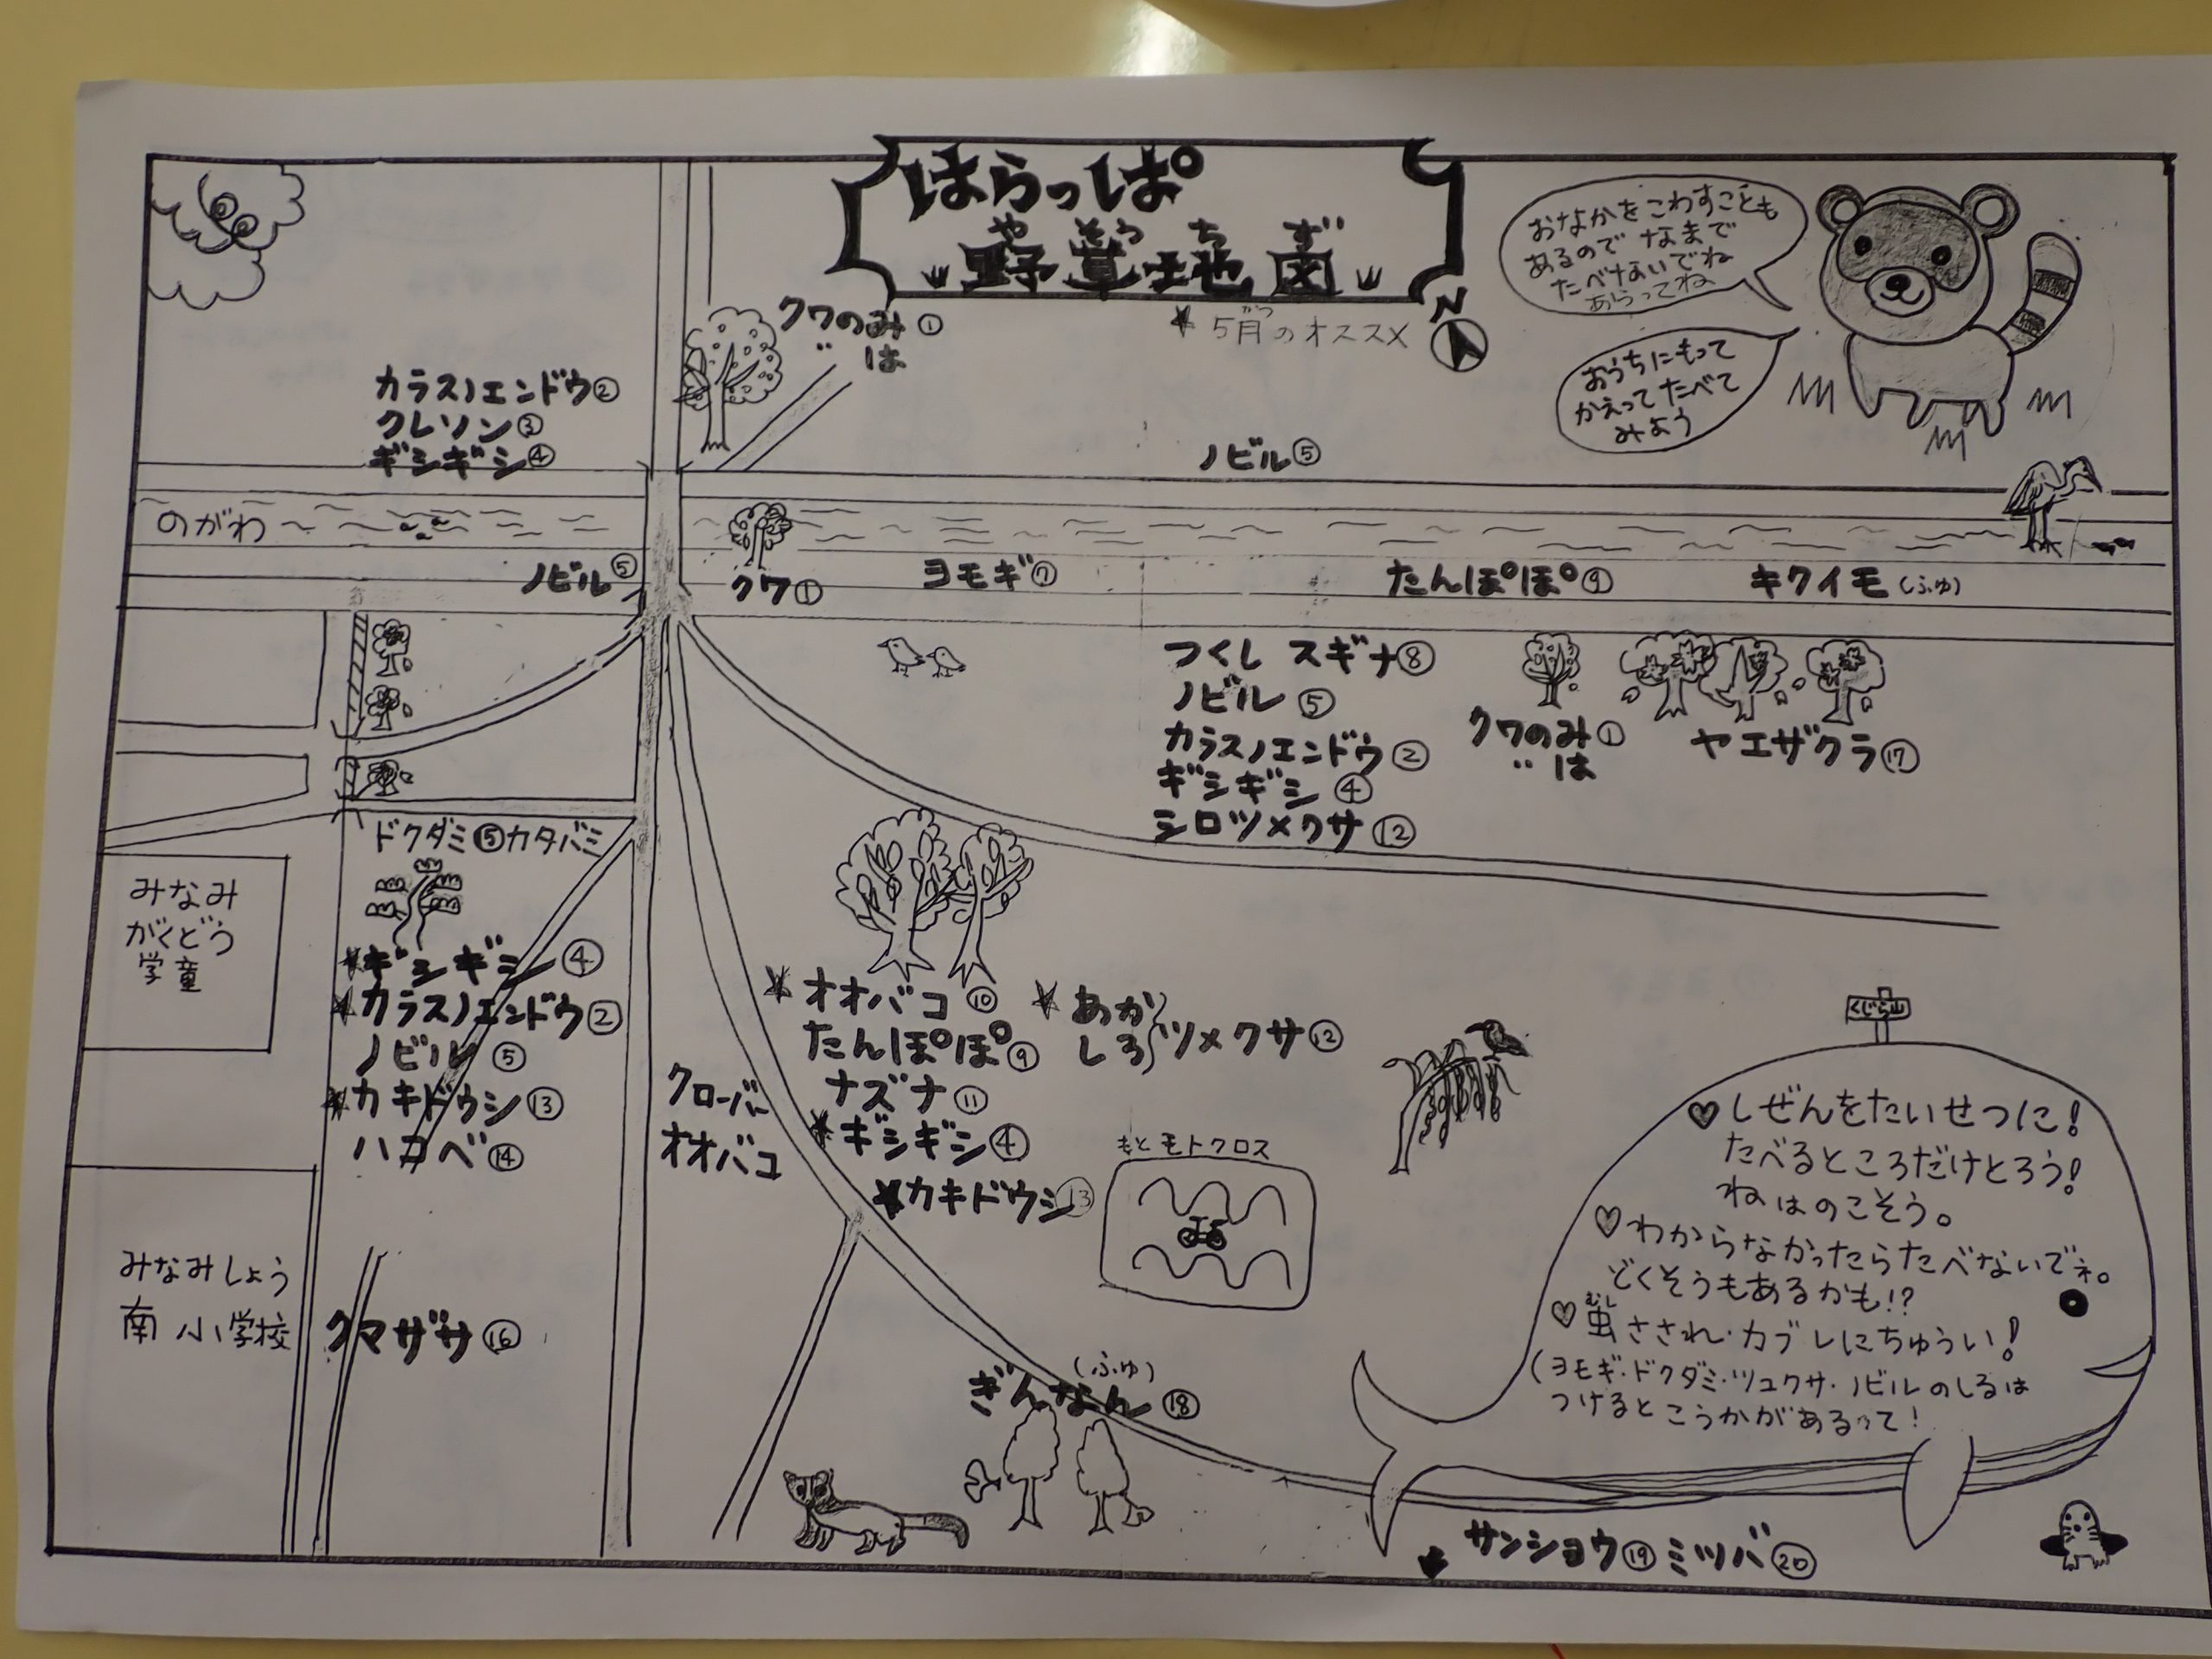 はらっぱ
やそうちず
野草地図
★5月のオススメ
がつ
N
おなかをこわすことも
あるので なまで
たべないでね
あらってね
おうちにもって
かえってたべて
みよう
クワのみ①
〃 は
カラスノエンドウ②
クレソン③
ギシギシ④
ノビル⑤
のがわ
ノビル⑤
クワ①
ヨモギ⑦
たんぽぽ⑨
キクイモ(ふゆ)
つくし スギナ⑧
ノビル⑤
カラスノエンドウ②
ギシギシ④
シロツメクサ⑫
クワのみ①
〃 は
ヤエザクラ⑰
ドクダミ⑮カタバミ
みなみ
がくどう
学童
★ギシギシ④
★カラスノエンドウ②
ノビル⑤
★カキドウシ⑬
ハコベ⑭
クローバー
オオバコ
★オオバコ⑩
たんぽぽ⑨
ナズナ⑪
★ギシギシ④
★カキドウシ⑬
★あか
しろ
ツメクサ⑫
もとモトクロス
みなみしょう
南小学校
クマザサ⑯
(ふゆ)
ぎんなん⑱
くじら山
♡しぜんをたいせつに!
たべるところだけとろう!
ねはのこそう。
♡わからなかったらたべないでネ。
どくそうもあるかも!?
むし
♡虫さされ・カブレにちゅうい!
(ヨモギ・ドクダミ・ツユクサ・ノビルのしるは
つけるとこうかがあるって!
サンショウ⑲ミツバ⑳